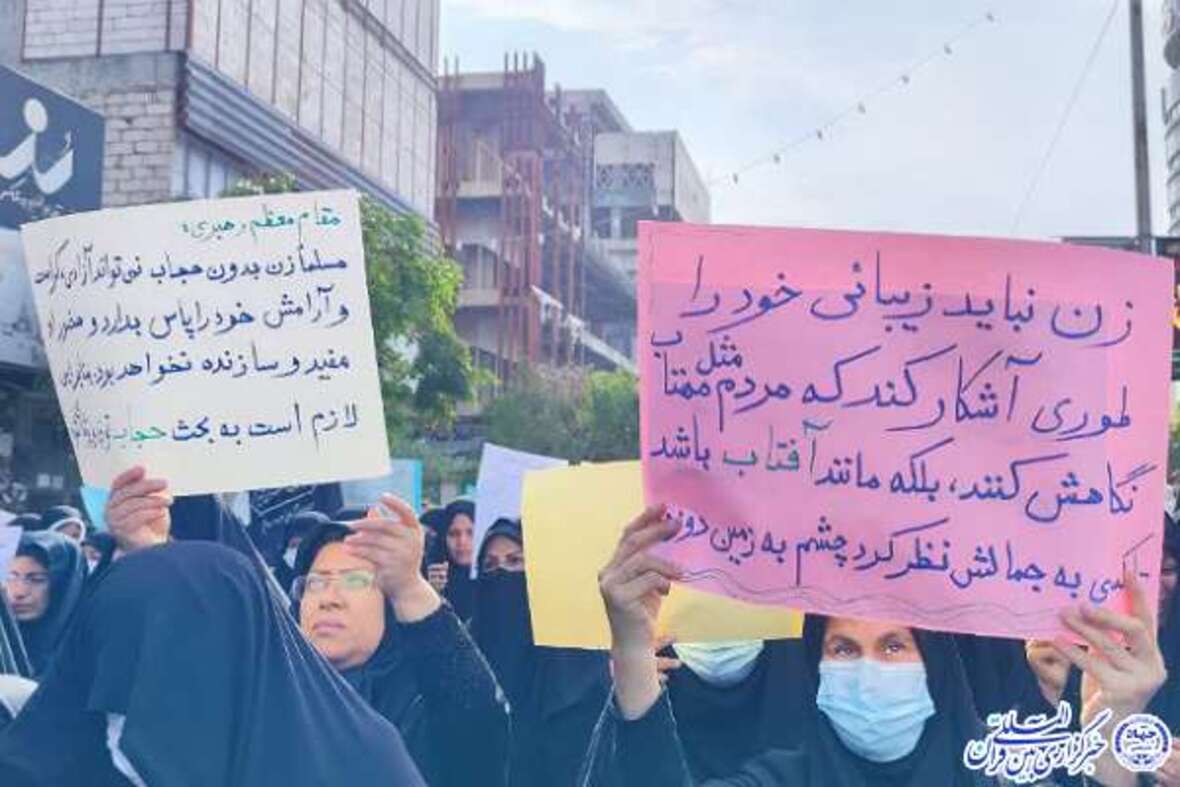 زن نباید زیبائی خود را
طوری آشکار کند که مردم مثل مهتاب
نگاهش کنند، بلکه مانند آفتاب باشد
به جمالش نظر کرد چشم به زمین
مقام معظم رهبری:
مسلماً زن بدون حجاب نمی تواند آزادی، کرامت
و آرامش خود را پاس بدارد و حضور او
مفید و سازنده نخواهد بود، بنابراین
لازم است به بحث حجاب
خبرگزاری بین المللی قرآن